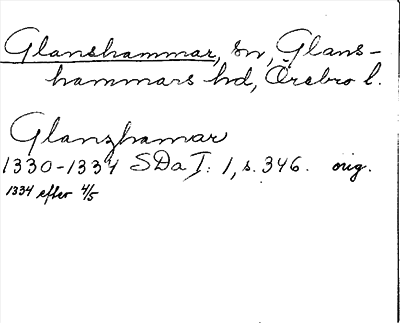 Glanshammar, sn, Glans-
hammars hd, Örebro l.
Glanzhamar
1330-1334 SDa I: 1, s. 346. orig.
1334 efter 4/5